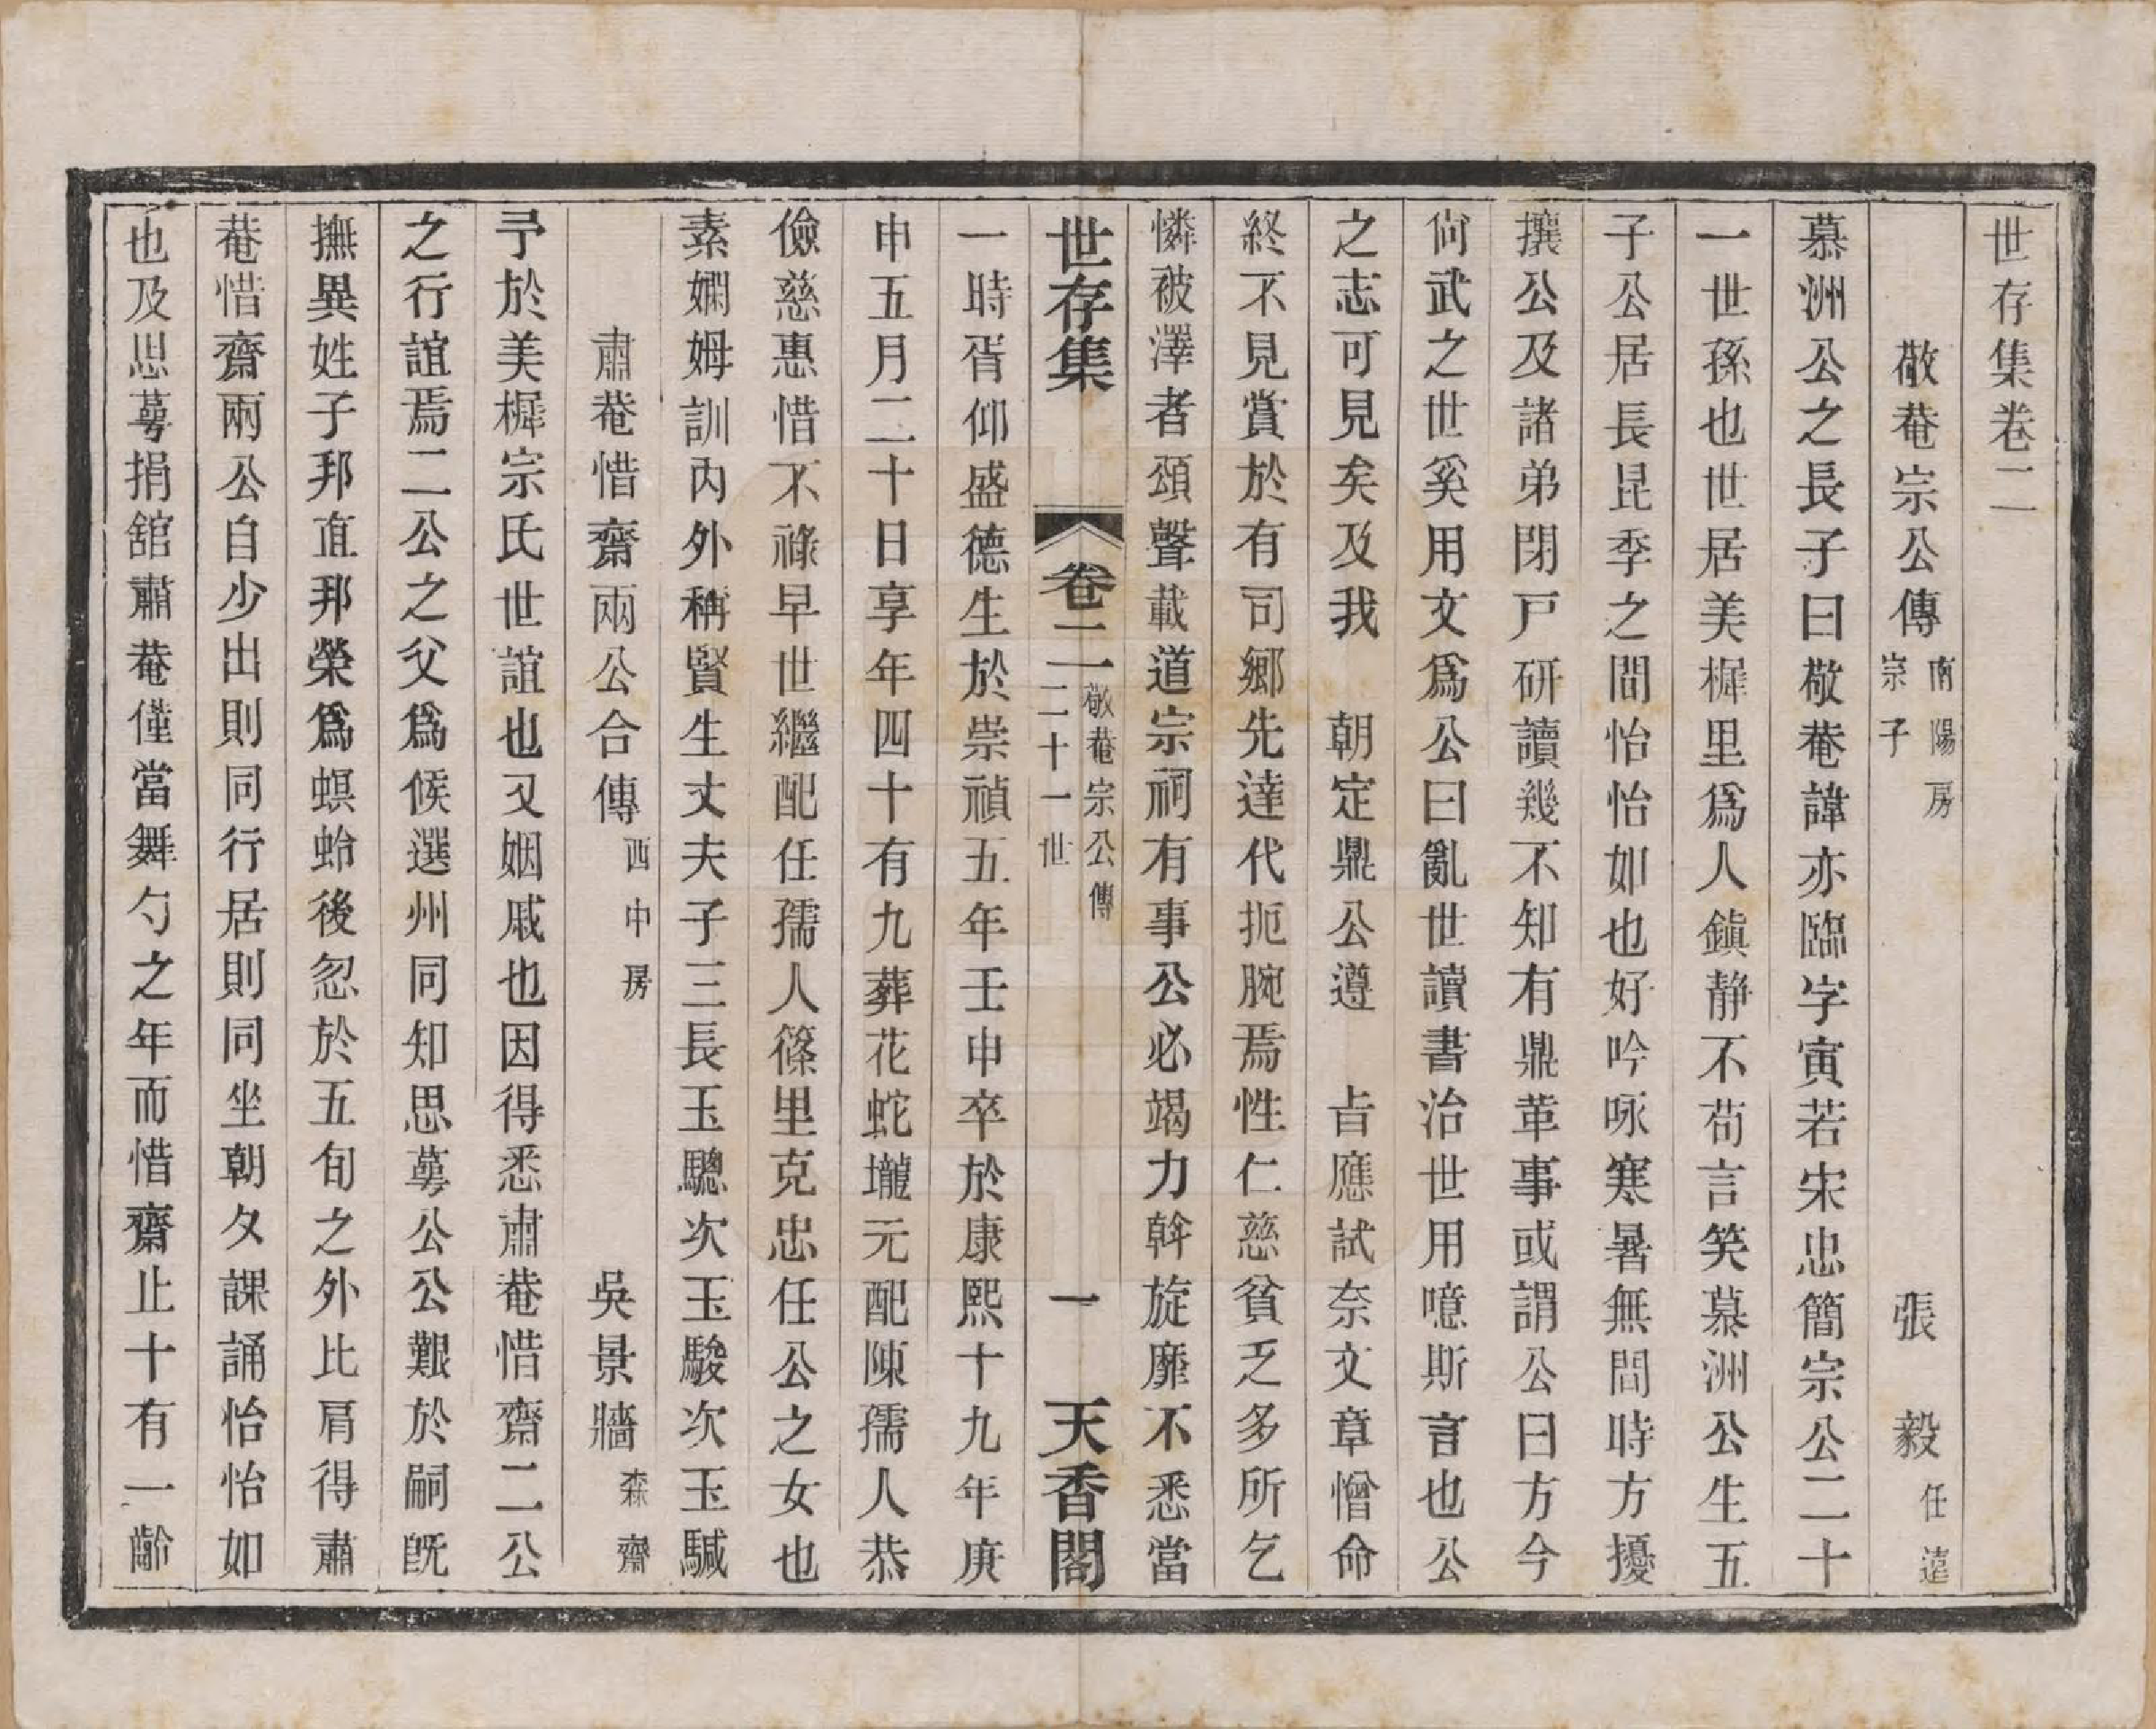 世存集卷二
敬菴宗公傳 南陽房 宗子 張毅 任遠
慕洲公之長子曰敬菴諱亦臨字寅若宋忠簡宗公二十
一世孫也世居美樨里爲人鎮静不苟言笑慕洲公生五
子公居長昆季之間怡怡如也好吟咏寒暑無間時方擾
攘公及諸弟閉戸研讀幾不知有鼎革事或謂公曰方今
尙武之世奚用文爲公曰亂世讀書治世用噫斯言也公
之志可見矣及我 朝定鼎公遵 㫖應試奈文章憎命
終不見賞於有司鄉先達代扼腕焉性仁慈貧乏多所乞
憐被澤者頌聲載道宗祠有事公必竭力斡旋靡不悉當
世存集 卷二 敬菴宗公傳 二十一世 一 天香閣
一時胥仰盛德生於崇禎五年壬申卒於康熙十九年庚
申五月二十日享年四十有九葬花蛇壠元配陳孺人恭
儉慈惠惜不祿早世繼配任孺人篠里克忠任公之女也
素嫻姆訓內外稱賢生丈夫子三長玉驄次玉駿次玉駴
肅菴惜齋兩公合傳 西中房 吳景牆 森齋
予於美樨宗氏世誼也又姻戚也因得悉肅菴惜齋二公
之行誼焉二公之父爲候選州同知思蕚公公艱於嗣旣
撫異姓子邦直邦榮爲螟蛉後忽於五旬之外比肩得肅
菴惜齋兩公自少出則同行居則同坐朝夕課誦怡怡如
也及思蕚捐舘肅菴僅當舞勺之年而惜齋止十有一齡